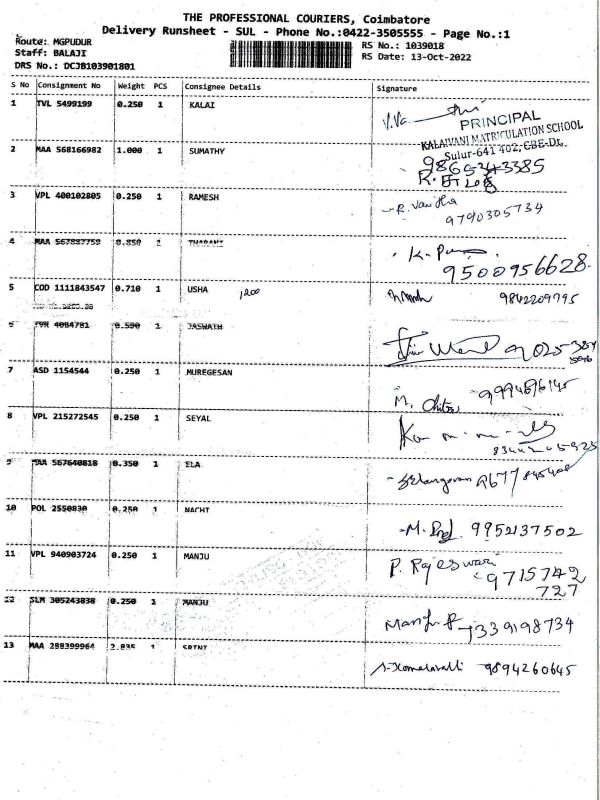 THE PROFESSIONAL COURIERS, Coimbatore
Delivery Runsheet - SUL - Phone No.:0422-3505555 - Page No.:1
Route: MGPUDUR
Staff: BALAJI
DRS No.: DCJB103901801
RS No.: 1039018
RS Date: 13-Oct-2022
S No Consignment No Weight PCS Consignee Details Signature
1 TVL 5499199 0.250 1 KALAI
PRINCIPAL
KALAIVANI MATRICULATION SCHOOL
Sulur-641 402, CBE-Dt.
2 MAA 568166982 1.000 1 SUMATHY
3 VPL 400102805 0.250 1 RAMESH
R. Vanitha
9790305734
4 MAA 567887759 0.350 1 THARANI
9500956628
5 COD 1111843547 0.710 1 USHA 1200
9842209795
6 4084781 0.590 1 JASWATH
7 ASD 1154544 0.250 1 MUREGESAN
M. Chitra
8 VPL 215272545 0.250 1 SEYAL
9 567640818 0.350 1 ELA
10 POL 2550830 0.250 1 NACHI
9952137502
11 VPL 940903724 0.250 1 MANJU
P. Rajeswari
9715742
727
12 SLM 305243838 0.250 1 MANJU
13 MAA 288399964 2.835 1 SRINI
9894260645